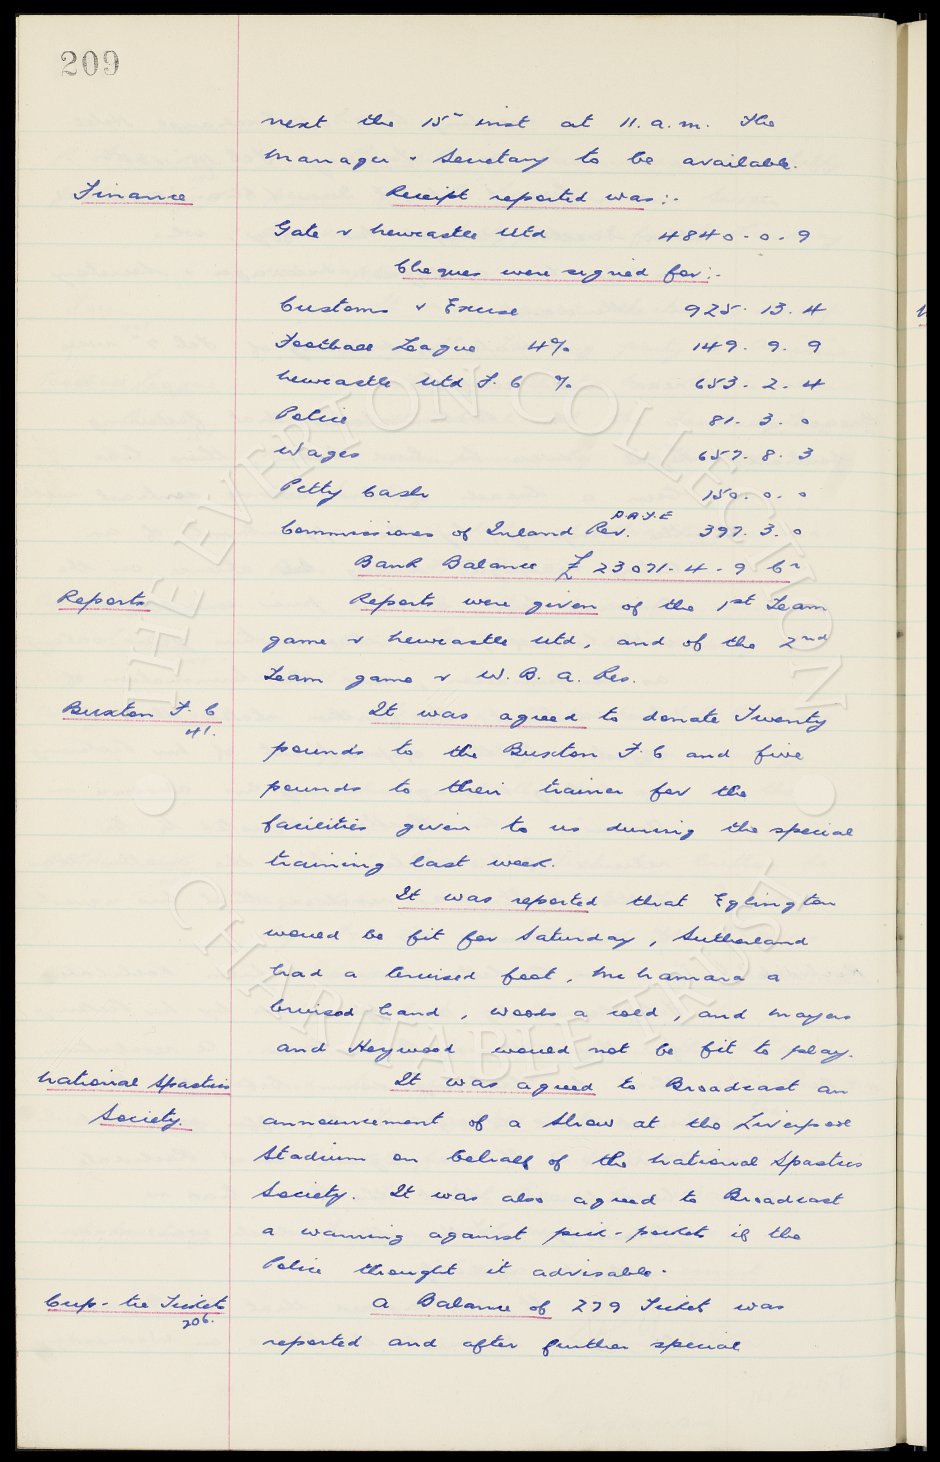 209
next the 15th inst at 11. a.m. The
Manager & Secretary to be available.
Finance
Receipt reported was :-
Gate v Newcastle Utd 4840 - 0 - 9
Cheques were signed for :-
Customs & Excise 925 - 13 - 4
Football League 4% 149 - 9 - 9
Newcastle Utd F. C % 653 - 2 - 4
Police 81 - 3 - 0
Wages 657 - 8 - 3
Petty Cash 150 - 0 - 0
Commissioners of Inland Rev. P.A.Y.E 397 - 3 - 0
Bank Balance £ 23071 - 4 - 9 Cr
Reports
Reports were given of the 1st Team
game v Newcastle Utd, and of the 2nd
Team game v W. B. A. Res.
Buxton F. C
41.
It was agreed to donate Twenty
pounds to the Buxton F. C and five
pounds to their trainer for the
facilities given to us during the special
training last week.
It was reported that Eglington
would be fit for Saturday, Sutherland
had a bruised foot, McNamara a
bruised hand, Woods a cold, and Mayers
and Haywood would not be fit to play.
National Spastics
Society.
It was agreed to Broadcast an
announcement of a Show at the Liverpool
Stadium on behalf of the National Spastics
Society. It was also agreed to Broadcast
a warning against pick-pockets if the
Police thought it advisable.
Cup-tie Tickets
206.
A Balance of 279 Ticket was
reported and after further special
THE EVERTON COLLECTION
CHARITABLE TRUST